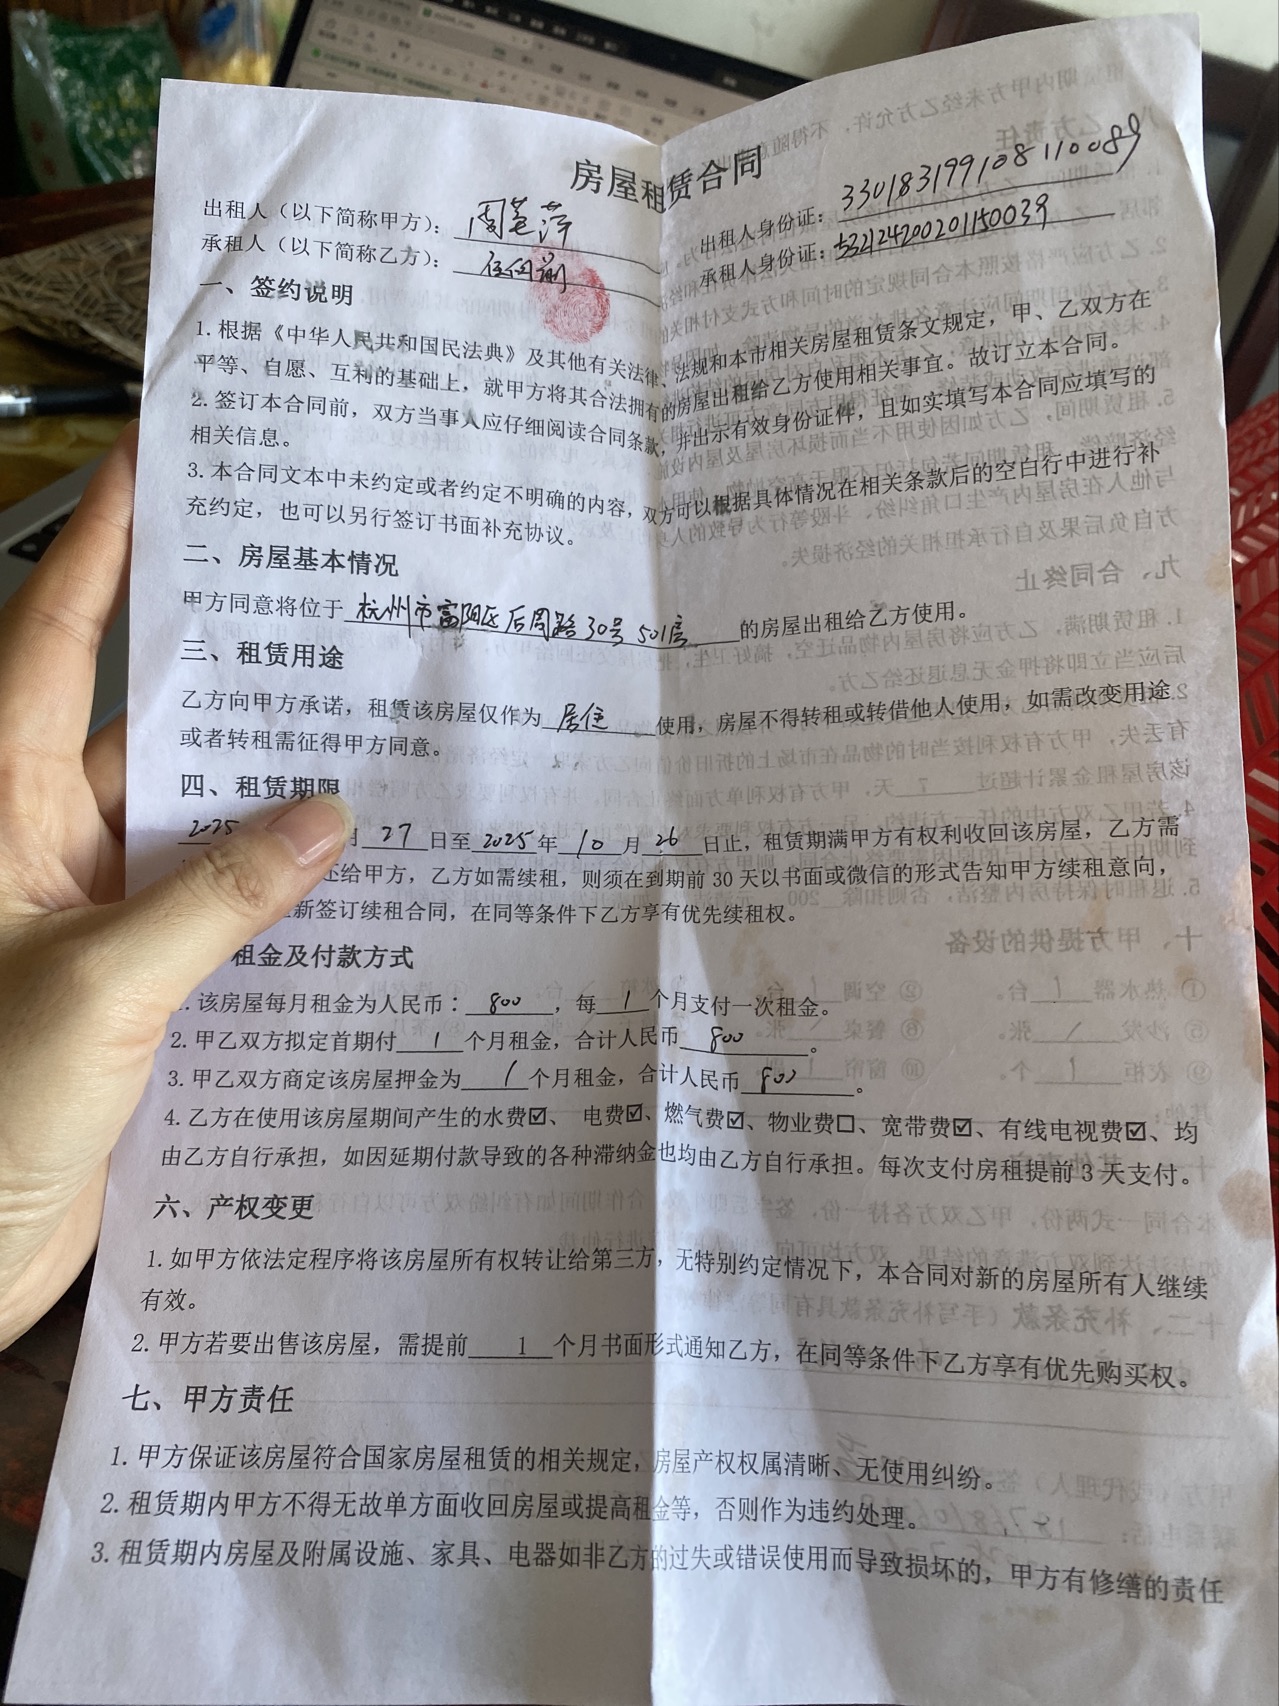 房屋租赁合同
出租人（以下简称甲方）： 出租人身份证：330183199108110089
承租人（以下简称乙方）： 承租人身份证：532124200201150039
一、签约说明
1.根据《中华人民共和国民法典》及其他有关法律、法规和本市相关房屋租赁条文规定，甲、乙双方在
平等、自愿、互利的基础上，就甲方将其合法拥有的房屋出租给乙方使用相关事宜。故订立本合同。
2.签订本合同前，双方当事人应仔细阅读合同条款，并出示有效身份证件，且如实填写本合同应填写的
相关信息。
3.本合同文本中未约定或者约定不明确的内容，双方可以根据具体情况在相关条款后的空白行中进行补
充约定，也可以另行签订书面补充协议。
二、房屋基本情况
甲方同意将位于杭州市富阳区后周路30号501房的房屋出租给乙方使用。
三、租赁用途
乙方向甲方承诺，租赁该房屋仅作为居住使用，房屋不得转租或转借他人使用，如需改变用途
或者转租需征得甲方同意。
四、租赁期限
2025 月27日至2025年10月26日止，租赁期满甲方有权利收回该房屋，乙方需
还给甲方，乙方如需续租，则须在到期前30天以书面或微信的形式告知甲方续租意向，
新签订续租合同，在同等条件下乙方享有优先续租权。
租金及付款方式
1.该房屋每月租金为人民币：800，每1个月支付一次租金。
2.甲乙双方拟定首期付1个月租金，合计人民币800。
3.甲乙双方商定该房屋押金为1个月租金，合计人民币800。
4.乙方在使用该房屋期间产生的水费☑、电费☑、燃气费☑、物业费☐、宽带费☑、有线电视费☑、均
由乙方自行承担，如因延期付款导致的各种滞纳金也均由乙方自行承担。每次支付房租提前3天支付。
六、产权变更
1.如甲方依法定程序将该房屋所有权转让给第三方，无特别约定情况下，本合同对新的房屋所有人继续
有效。
2.甲方若要出售该房屋，需提前1个月书面形式通知乙方，在同等条件下乙方享有优先购买权。
七、甲方责任
1.甲方保证该房屋符合国家房屋租赁的相关规定，房屋产权权属清晰、无使用纠纷。
2.租赁期内甲方不得无故单方面收回房屋或提高租金等，否则作为违约处理。
3.租赁期内房屋及附属设施、家具、电器如非乙方的过失或错误使用而导致损坏的，甲方有修缮的责任